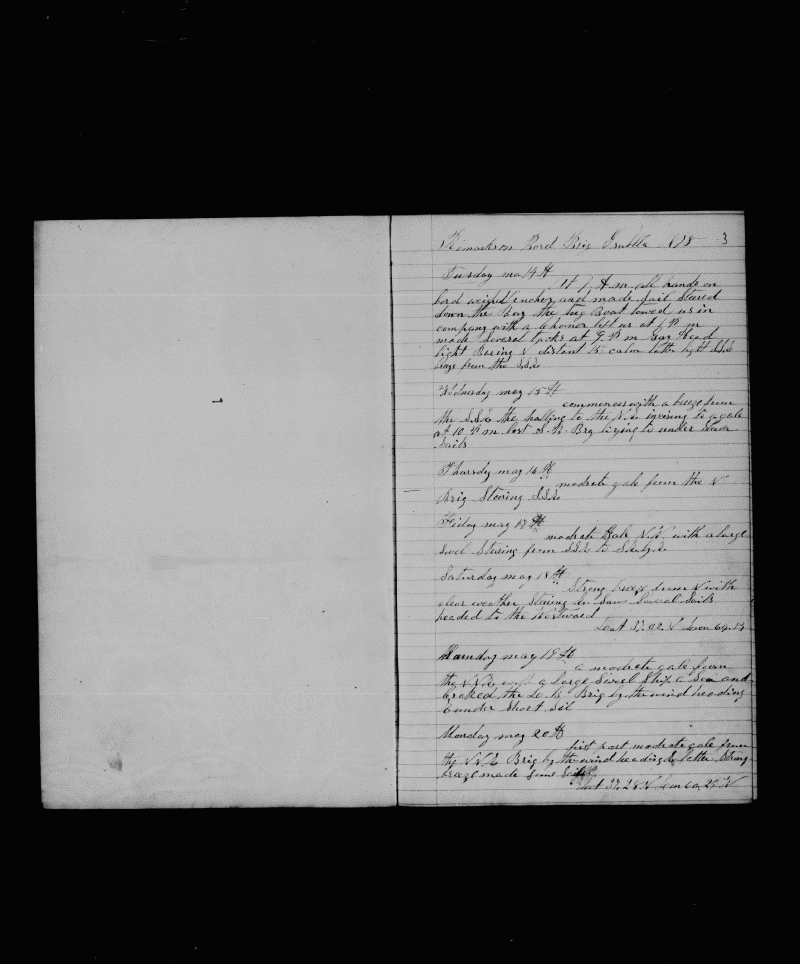 Remarks on Bord Brig Isabella 1878 3
Tuesday may 14th
At 7 A m all hands on
bord weighed anchor and made sail Stered
down the Bay the tug Boat towed us in
company with a left us at 1 P m
made Several tacks at 9 P m Gay Head
light Bering N distant 15 calm latter light SSE
from the SSE
Wednesday may 15th
commences with a breze from
the SSE the halling to the to a gale
at 10 P m lost S. Brig lying to under
Sails
Thursday may 16th
modrate gale from the N
Brig Stering SSE
Friday may 17th
modrate Gale N.W. with a large
Swel Stering from SSE to
Saturday may 18th
Strong breze from N with
clear weather Stering Saw Several Sails
headed to the Westward
Lat 37.02 N Lon 69.
Sunday may 19th
a modrate gale from
the N N E a large Swel Ship a Sea and
the Brig by the wind heading
E under Short Sail
Monday may 20th
first part modrate gale from
the N N E Brig by the wind heading E latter Strong
braze made Some Sail
Lat 37.28 N Lon 60.29 W